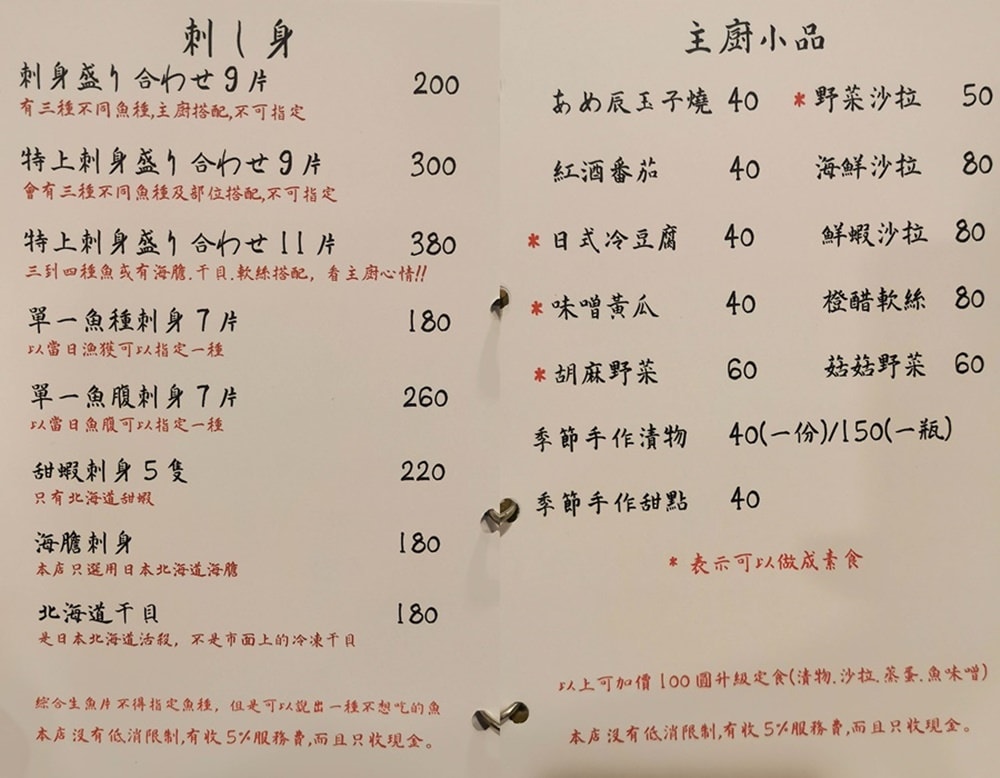 刺し身
刺身盛り合わせ9片 200
有三種不同魚種,主廚搭配,不可指定
特上刺身盛り合わせ9片 300
會有三種不同魚種及部位搭配,不可指定
特上刺身盛り合わせ11片 380
三到四種魚或有海膽.干貝.軟絲搭配, 看主廚心情!!
單一魚種刺身7片 180
以當日漁獲可以指定一種
單一魚腹刺身7片 260
以當日魚腹可以指定一種
甜蝦刺身5隻 220
只有北海道甜蝦
海膽刺身 180
本店只選用日本北海道海膽
北海道干貝 180
是日本北海道活殺, 不是市面上的冷凍干貝
綜合生魚片不得指定魚種, 但是可以說出一種不想吃的魚
本店沒有低消限制,有收5%服務費,而且只收現金。
主廚小品
あめ辰玉子燒 40 *野菜沙拉 50
紅酒番茄 40 海鮮沙拉 80
*日式冷豆腐 40 鮮蝦沙拉 80
*味噌黃瓜 40 橙醋軟絲 80
*胡麻野菜 60 菇菇野菜 60
季節手作漬物 40(一份)/150(一瓶)
季節手作甜點 40
* 表示可以做成素食
以上可加價100圓升級定食(漬物.沙拉.蒸蛋.魚味噌)
本店沒有低消限制,有收5%服務費,而且只收現金。